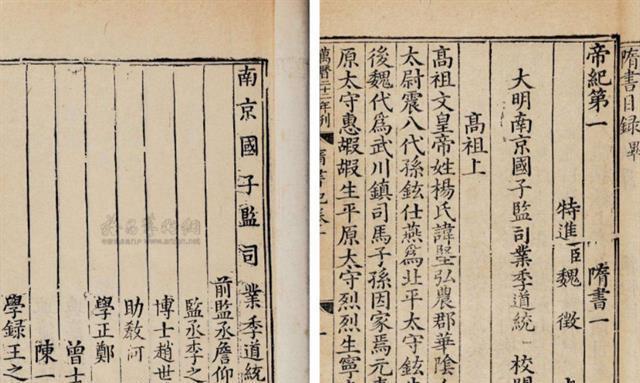 隋書目録 畢
帝紀第一 隋書一
特進臣魏徵
大明南京國子監司業季道統 校
高祖上
高祖文皇帝姓楊氏諱堅弘農郡華陰
太尉震八代孫鉉仕燕爲北平太守鉉
後魏代爲武川鎮司馬子孫因家焉元
原太守惠嘏嘏生平原太守烈烈生寧
萬曆二十二年刊
南京國子監司業季道統
前監丞詹仰
監丞李之
博士趙世
助教何
學正鄭
曾士
陳一
學録王之